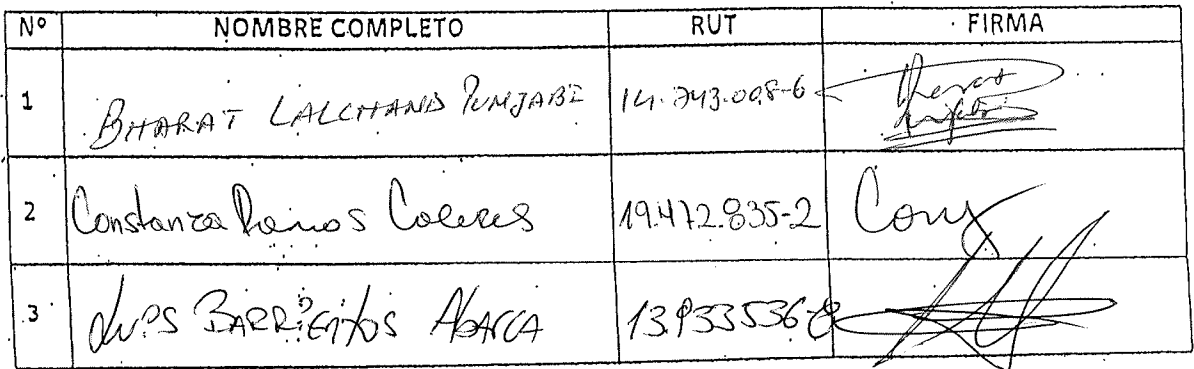 Nº NOMBRE COMPLETO RUT FIRMA
1 BHARAT LALCHAND PUNJABI 14.743.008-6
2 Constanza Ramos Caceres 19.472.835-2 Cony
3 Luis BARRIENTOS ABARCA 13.933536-8